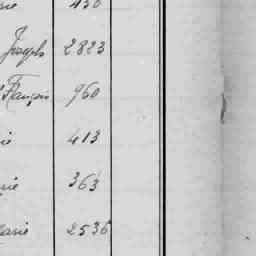 rie 430
Joseph 2823
François 960
rie 413
rie 363
Marie 2536